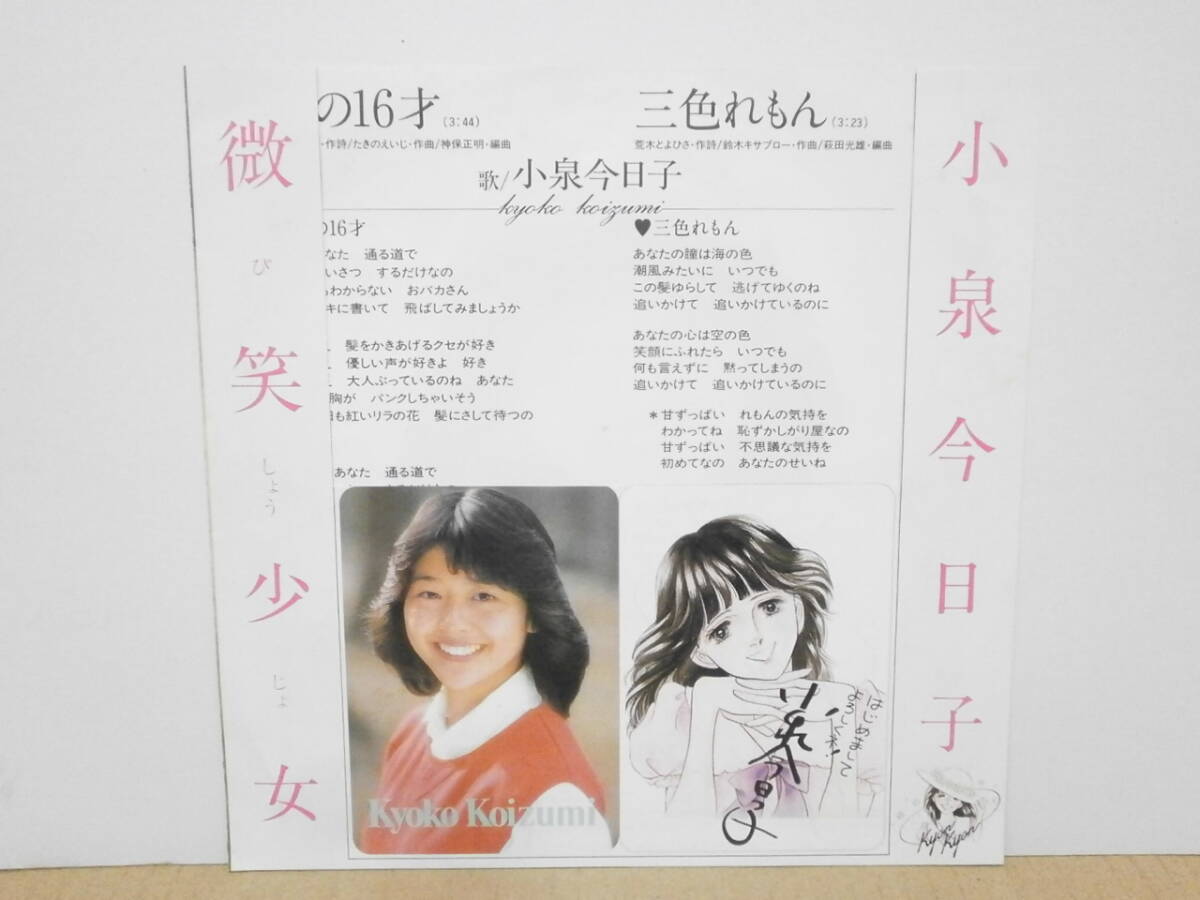 微笑少女
び
しょう
じょ
の16才(3:44)
・作詩/たきのえいじ・作曲/神保正明・編曲
三色れもん(3:23)
荒木とよひさ・作詩/鈴木キサブロー・作曲/萩田光雄・編曲
歌/小泉今日子
kyoko koizumi
の16才
なた 通る道で
いさつ するだけなの
らわからない おバカさん
キに書いて 飛ばしてみましょうか
髪をかきあげるクセが好き
優しい声が好きよ 好き
大人ぶっているのね あなた
胸が パンクしちゃいそう
も紅いリラの花 髪にさして待つの
あなた 通る道で
♥三色れもん
あなたの瞳は海の色
潮風みたいに いつでも
この髪ゆらして 逃げてゆくのね
追いかけて 追いかけているのに
あなたの心は空の色
笑顔にふれたら いつでも
何も言えずに 黙ってしまうの
追いかけて 追いかけているのに
*甘ずっぱい れもんの気持を
わかってね 恥ずかしがり屋なの
甘ずっぱい 不思議な気持を
初めてなの あなたのせいね
Kyoko Koizumi
はじめまして
よろしくネ!
小泉今日子
小泉今日子
Kyon
Kyon